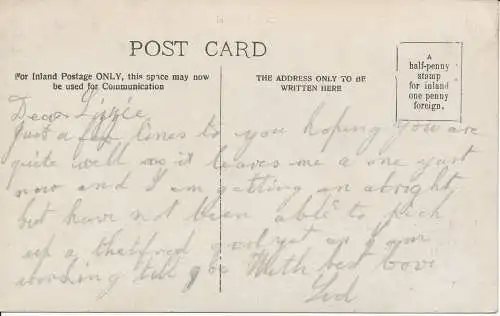 POST CARD
For Inland Postage ONLY, this space may now
be used for Communication
THE ADDRESS ONLY TO BE
WRITTEN HERE
A
half-penny
stamp
for inland
one penny
foreign.
Dear Lizzie
Just a few lines to you hoping you are
quite well as it leaves me a one just
now and I am getting on alright
but have not been able to pick
up a yet as I am
working till 9 With best love